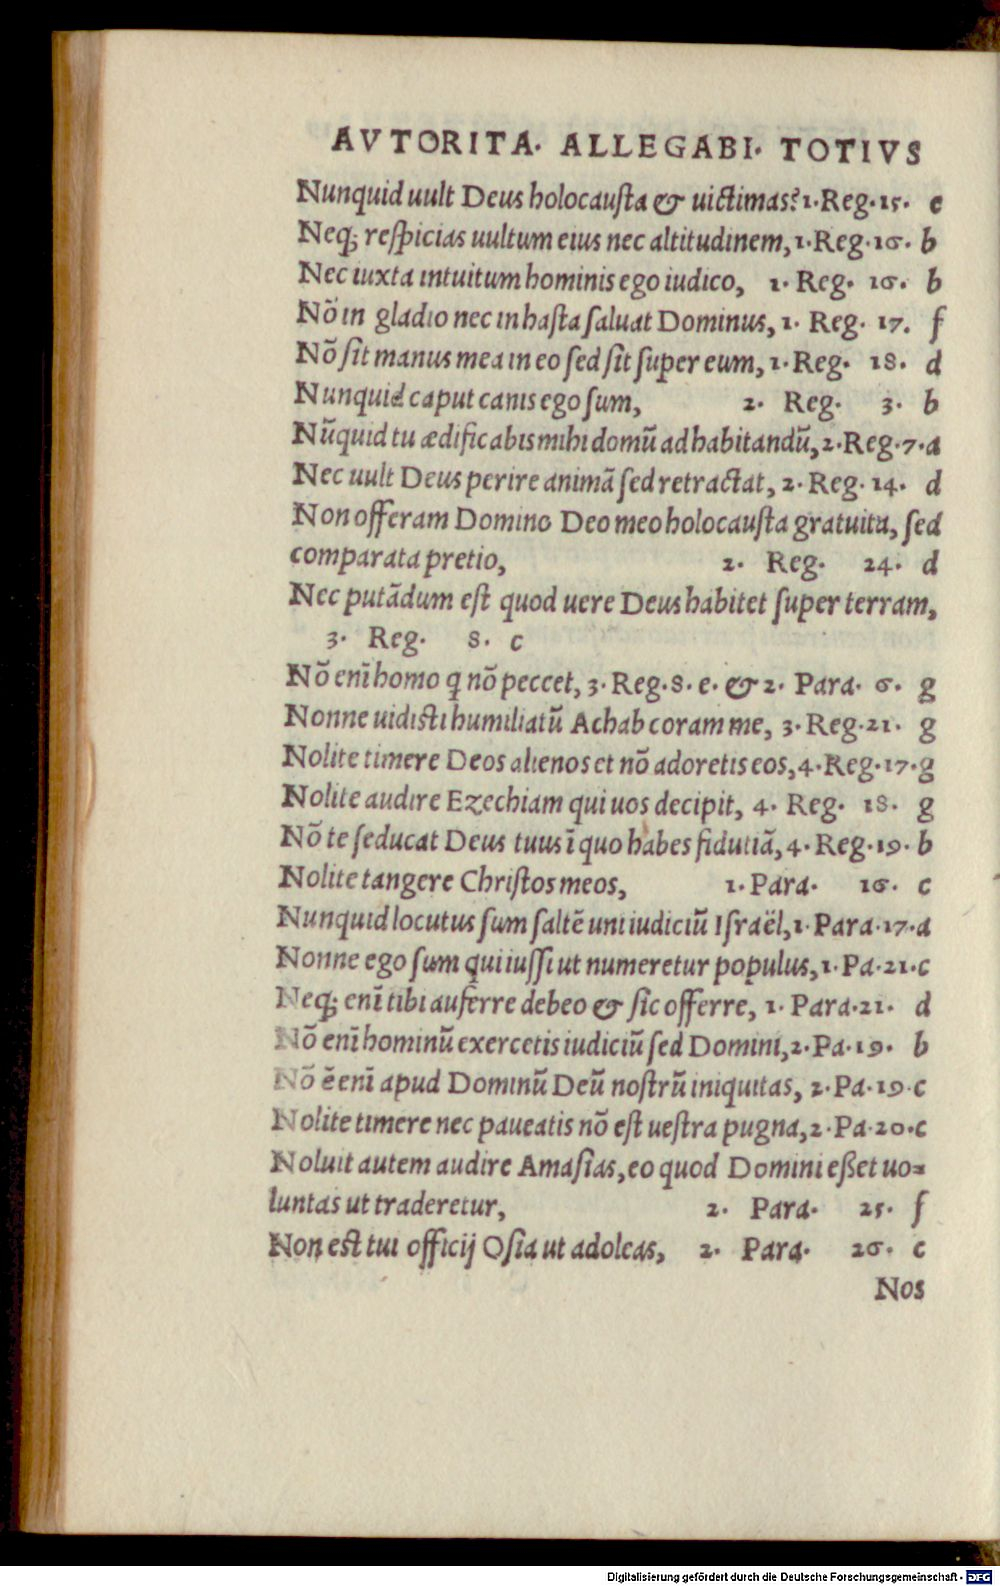 AVTORITA· ALLEGABI· TOTIVS
Nunquid uult Deus holocauſta & uictimas? 1·Reg·15· e
Neq; reſpicias uultum eius nec altitudinem, 1·Reg·16· b
Nec iuxta intuitum hominis ego iudico, 1· Reg· 16· b
Nõ in gladio nec in haſta ſaluat Dominus, 1· Reg· 17. f
Nõ ſit manus mea in eo ſed ſit ſuper eum, 1·Reg· 18· d
Nunquid caput canis ego ſum, 2· Reg· 3· b
Nũquid tu ædificabis mihi domũ ad habitandũ, 2·Reg·7·a
Nec uult Deus perire animã ſed retractat, 2·Reg·14· d
Non offeram Domino Deo meo holocauſta gratuita, ſed
comparata pretio, 2· Reg· 24· d
Nec putãdum eſt quod uere Deus habitet ſuper terram,
3· Reg· 8· c
Nõ enĩ homo q nõ peccet, 3·Reg·8·e·& 2· Para· 6· g
Nonne uidiſti humiliatũ Achab coram me, 3·Reg·21· g
Nolite timere Deos alienos et nõ adoretis eos, 4·Reg·17·g
Nolite audire Ezechiam qui uos decipit, 4· Reg· 18· g
Nõ te ſeducat Deus tuus ĩ quo habes fidutiã, 4·Reg·19·b
Nolite tangere Chriſtos meos, 1·Para· 16· c
Nunquid locutus ſum ſaltẽ uni iudiciũ Iſraël, 1·Para·17·a
Nonne ego ſum qui iuſſi ut numeretur populus, 1·Pa·21·c
Neq; enĩ tibi auferre debeo & ſic offerre, 1· Para·21· d
Nõ enĩ hominũ exercetis iudiciũ ſed Domini, 2·Pa·19· b
Nõ ẽ enĩ apud Dominũ Deũ noſtrũ iniquitas, 2·Pa·19·c
Nolite timere nec paueatis nõ eſt ueſtra pugna, 2·Pa·20·c
Noluit autem audire Amaſias, eo quod Domini eßet uo=
luntas ut traderetur, 2· Para· 25· f
Non eſt tui officij Oſia ut adoleas, 2· Para· 26· c
Nos
Digitalisierung gefördert durch die Deutsche Forschungsgemeinschaft - DFG